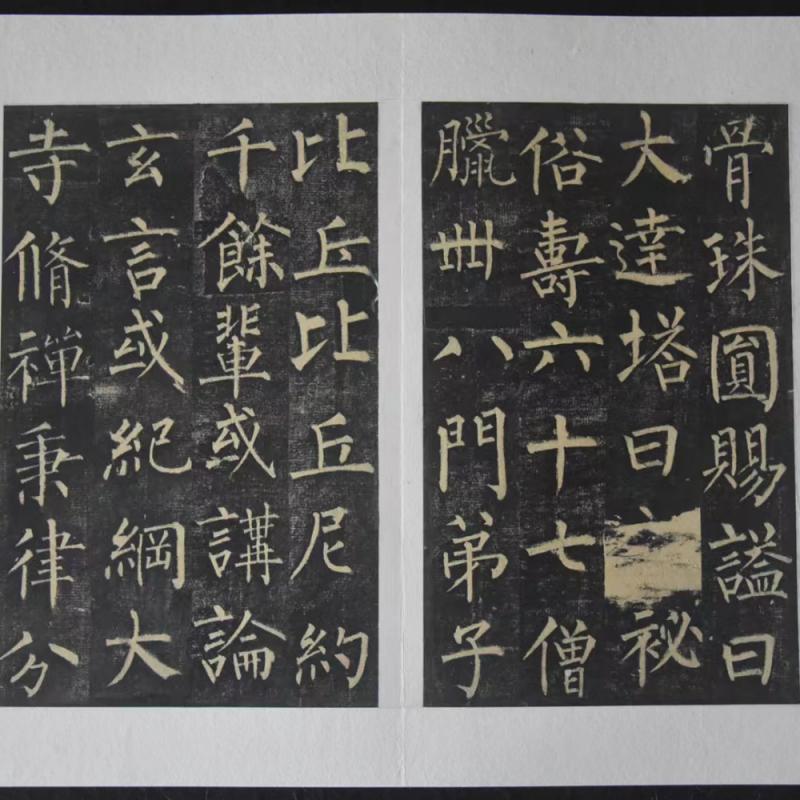 骨珠圓賜謚曰
大達塔曰秘
俗壽六十七僧
臘卌八門弟子
比丘比丘尼約
千餘輩或講論
玄言或紀綱大
寺脩禪秉律分